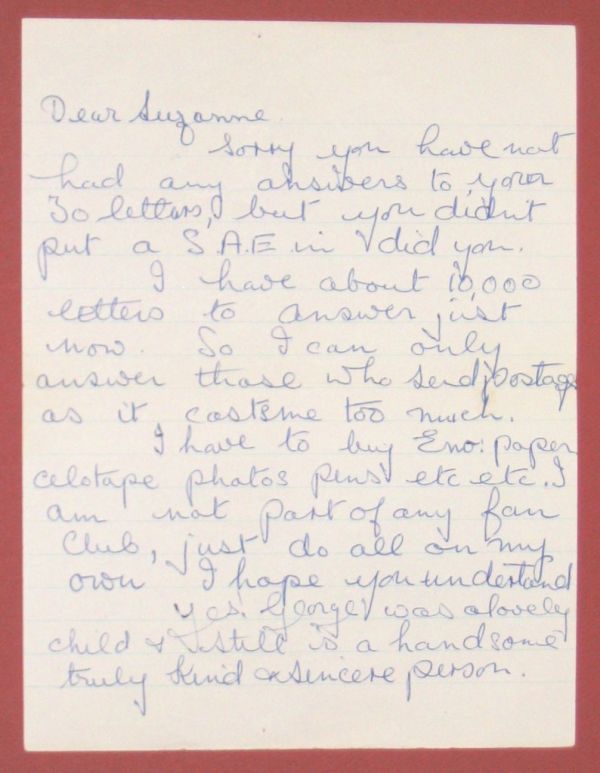 Dear Suzanne
Sorry you have not
had any answers to your
30 letters, but you didn't
put a S.A.E in did you.
I have about 10,000
letters to answer just
now. So I can only
answer those who send postage
as it costsme too much.
I have to buy Env: paper
celotape photos pens etc etc. I
am not part of any fan
Club, just do all on my
own I hope you understand
Yes. George was a lovely
child & still is a handsome
truly kind & sincere person.